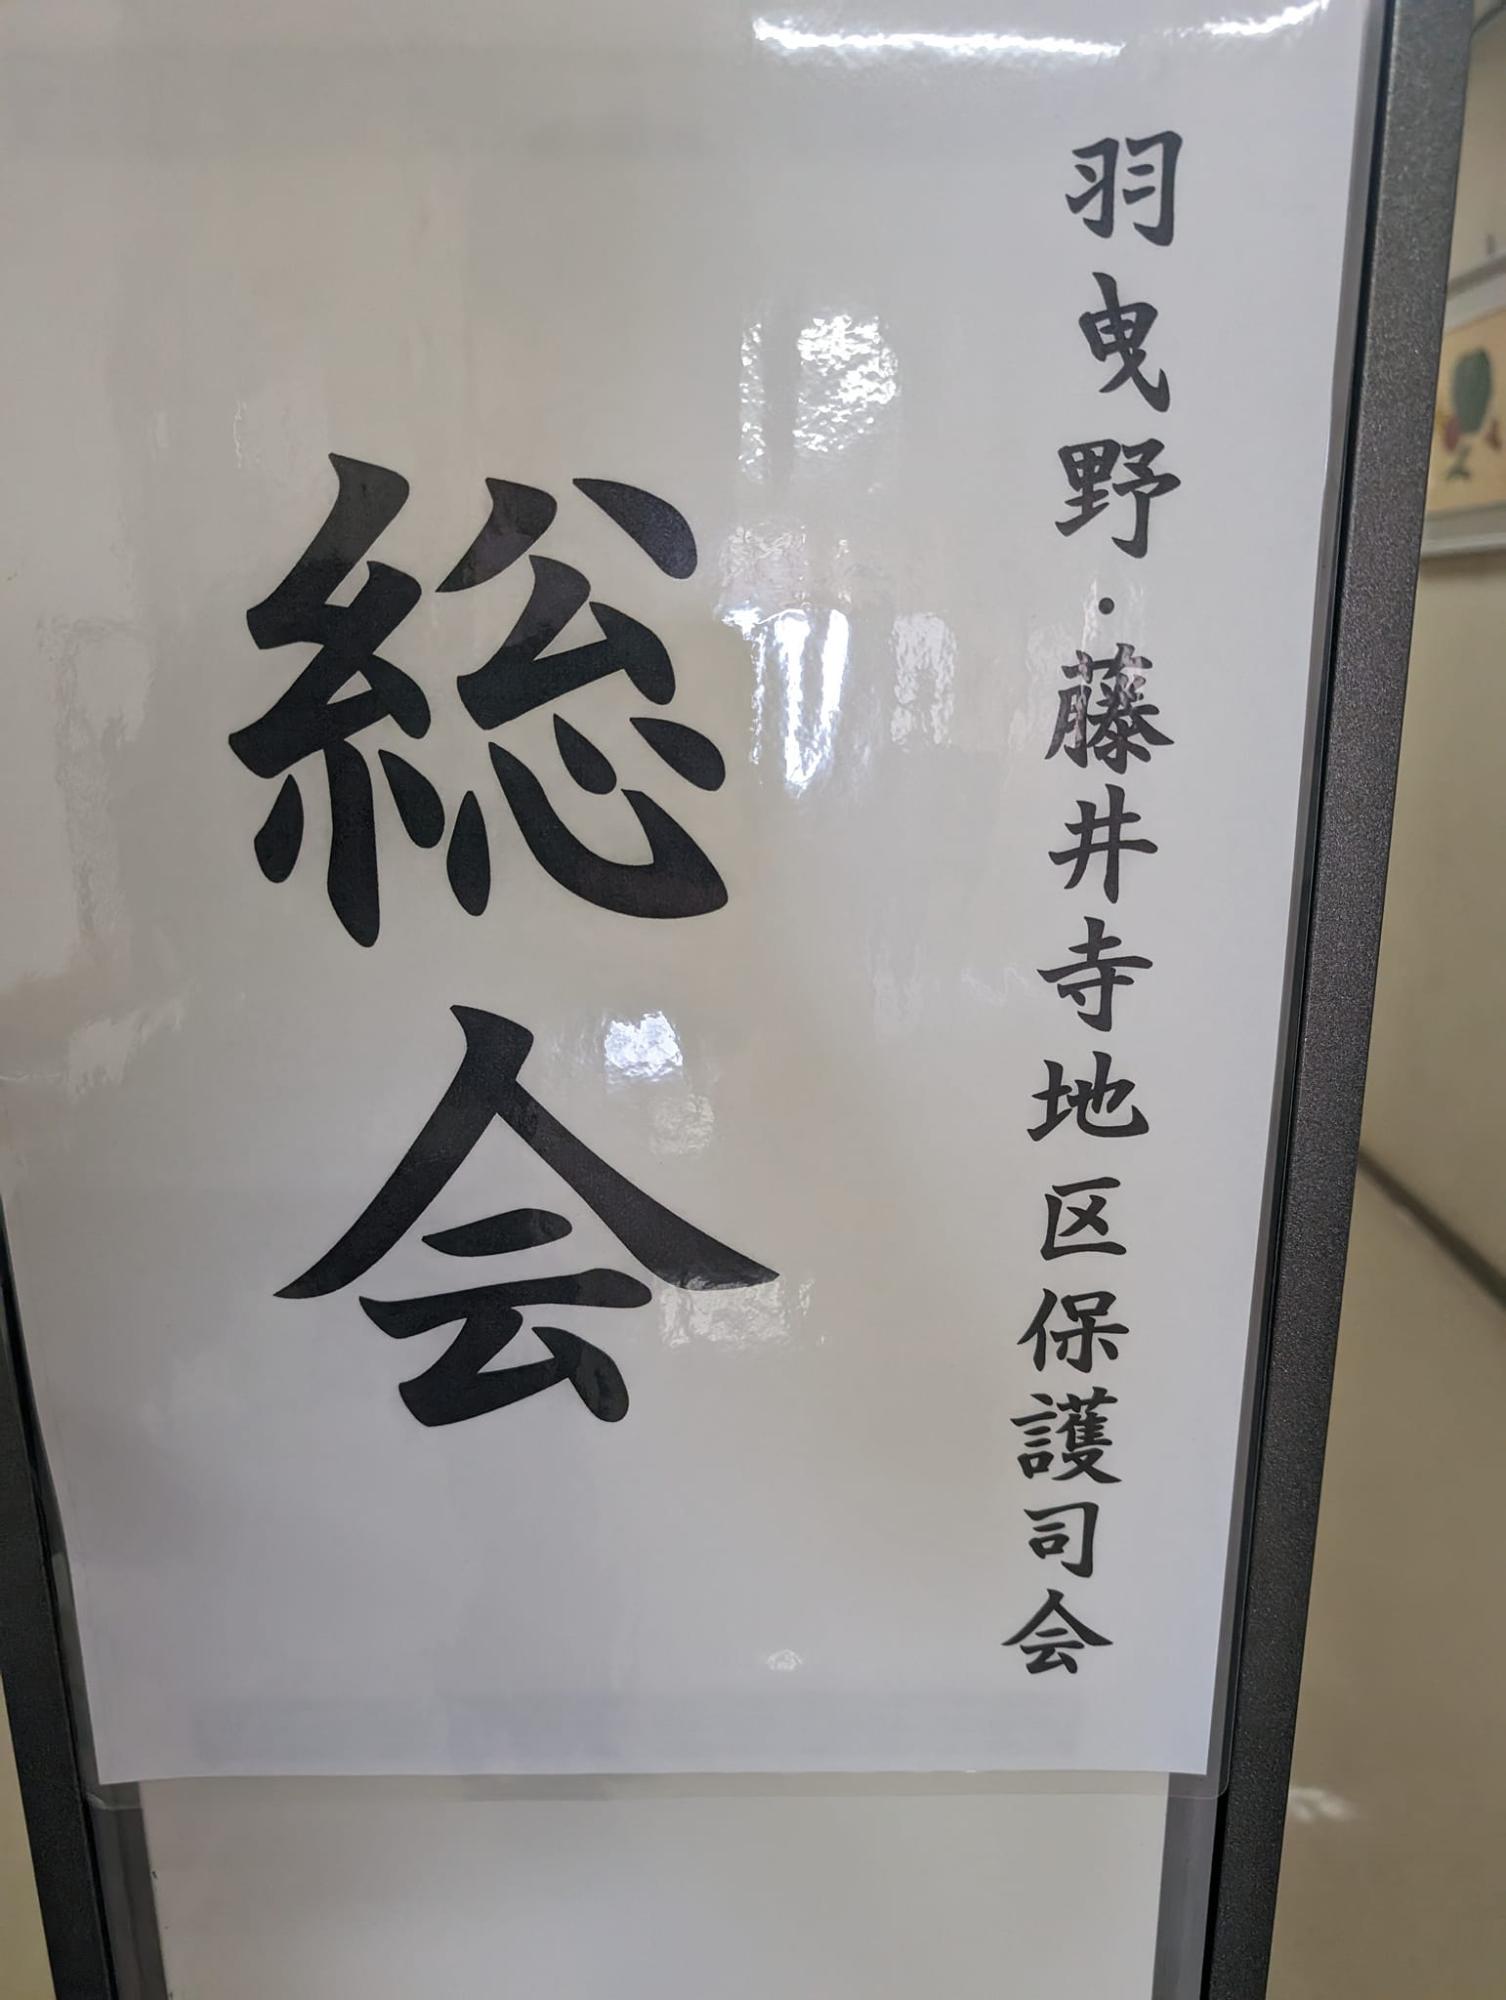 羽曳野・藤井寺地区保護司会
総会